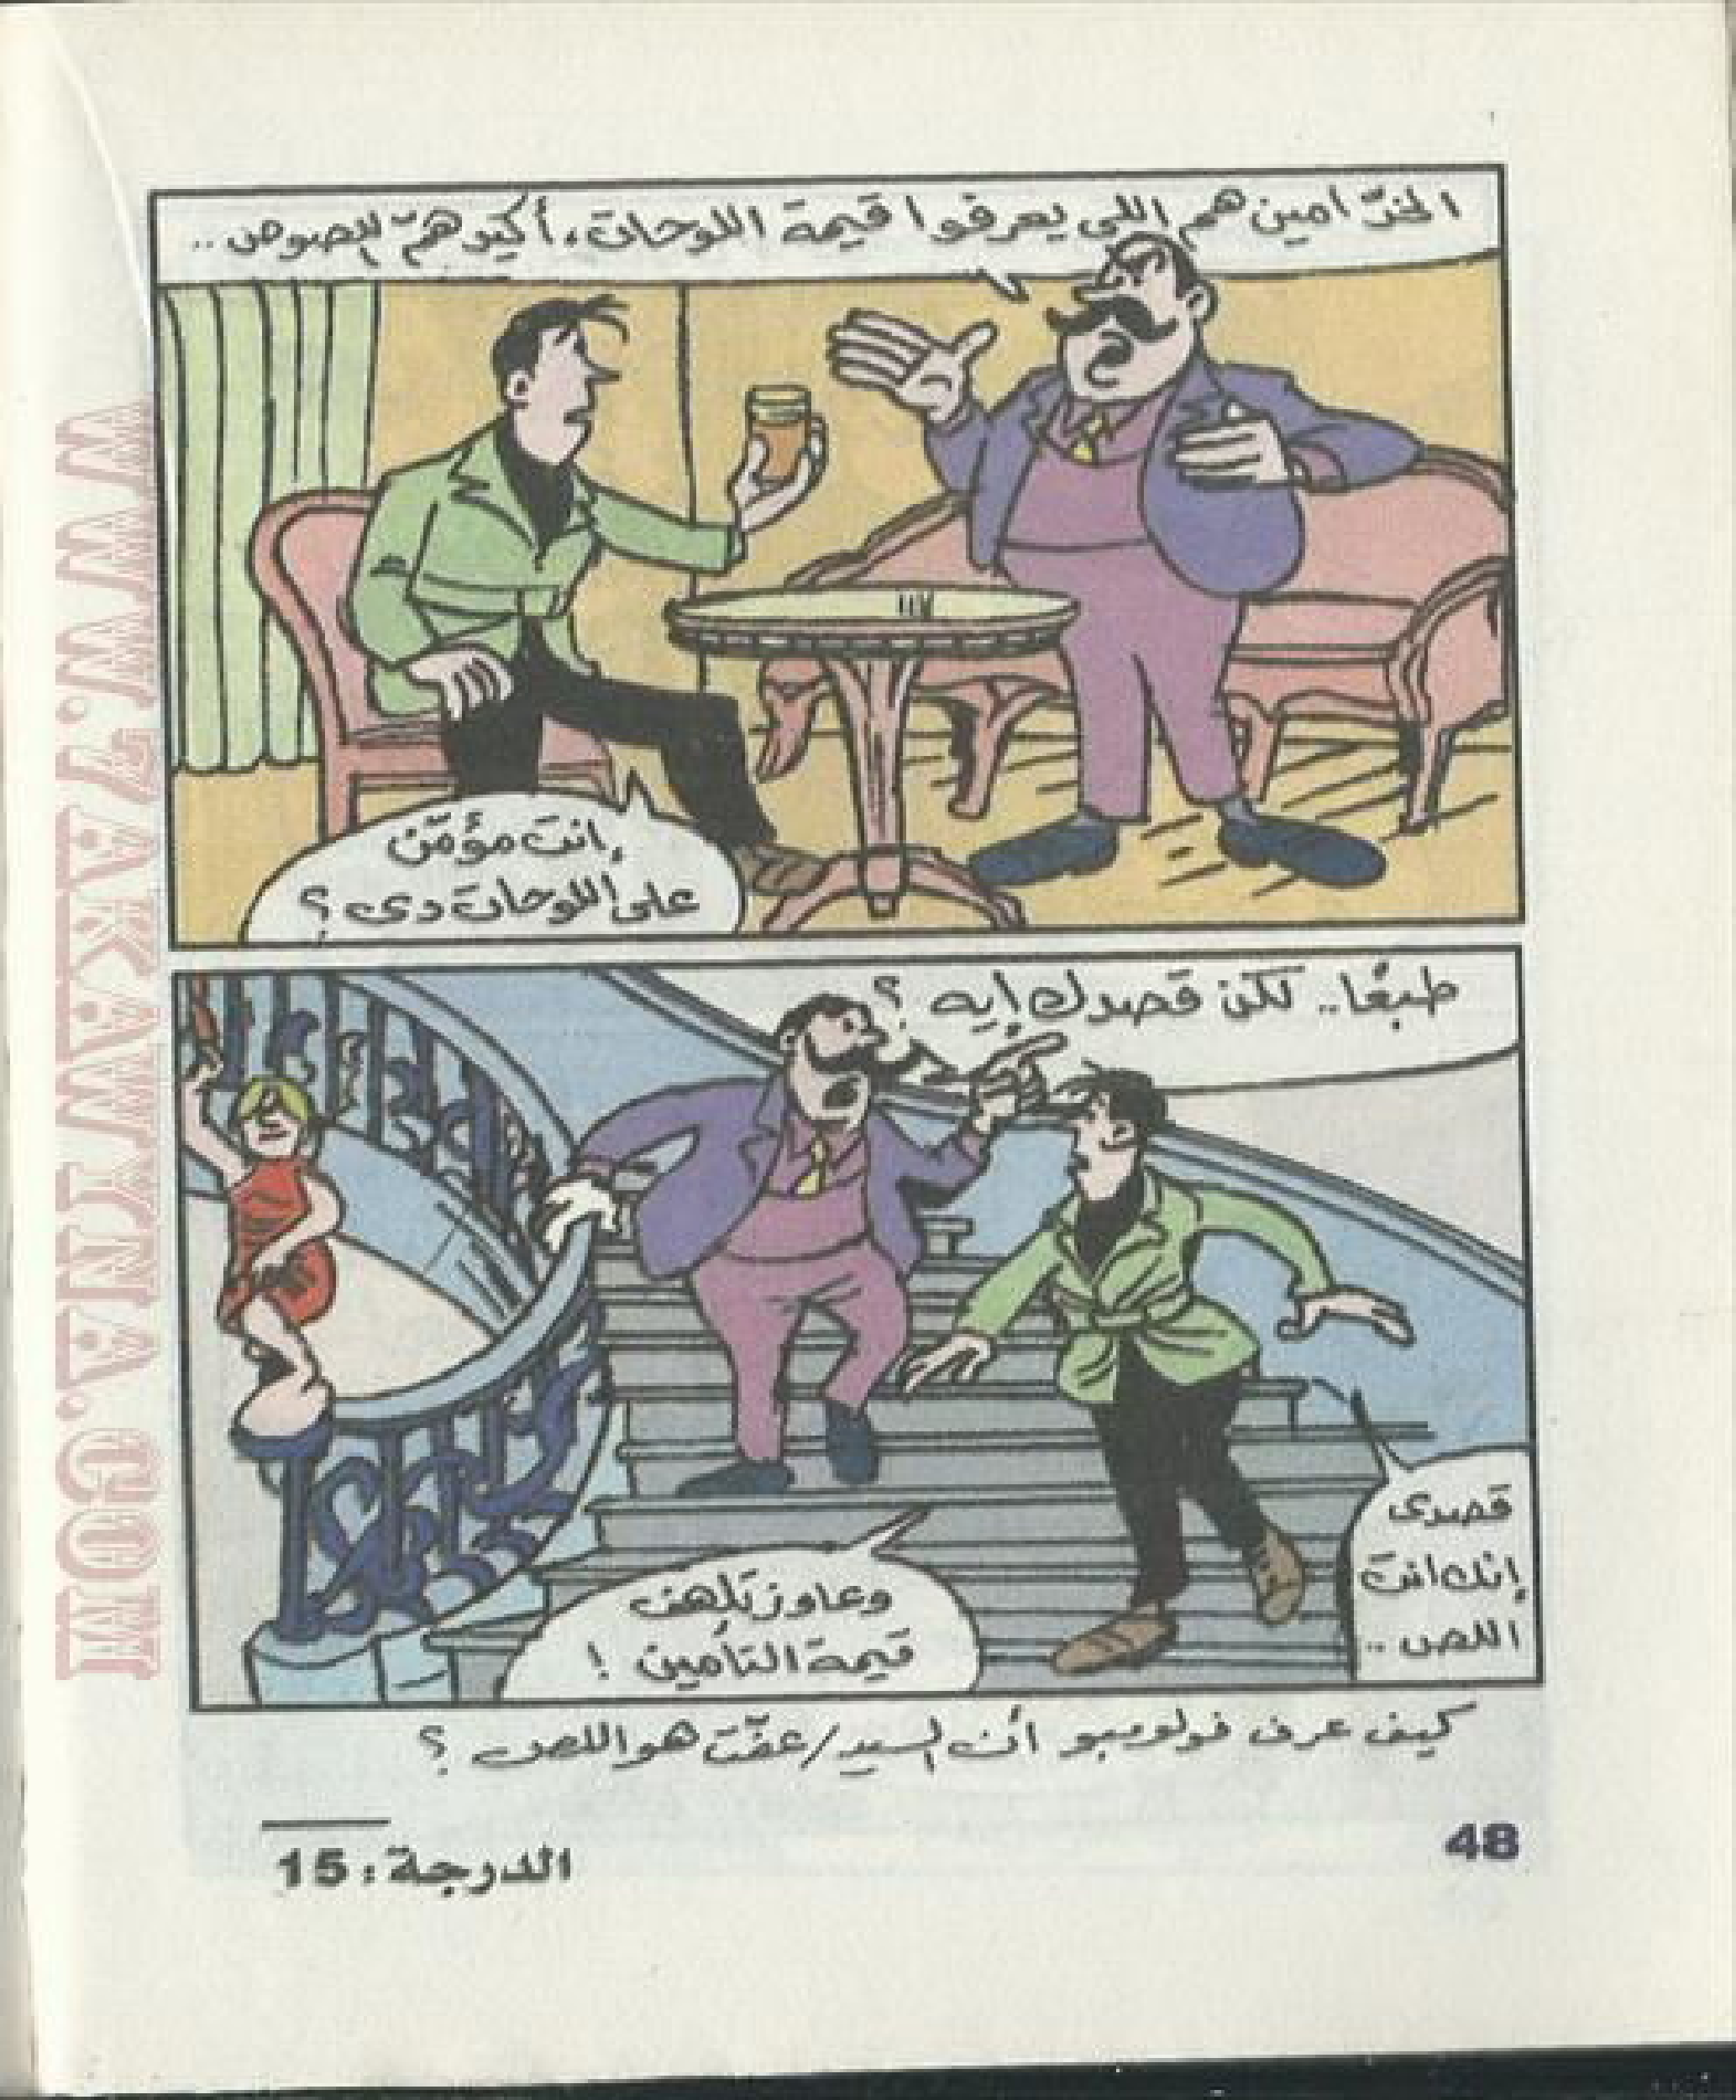 الخدّامين هم اللى يعرفوا قيمة اللوحات، أكيد همّ اللصوص..
إنت مؤمّن
على اللوحات دى؟
طبعًا.. لكن قصدك إيه؟
قصدى
إنك انت
اللص..
وعاوز تلهف
قيمة التأمين!
كيف عرف فولومبو أن السيد/عفّت هو اللص؟
48
الدرجة: 15
WWW.7AKAWTNA.COM